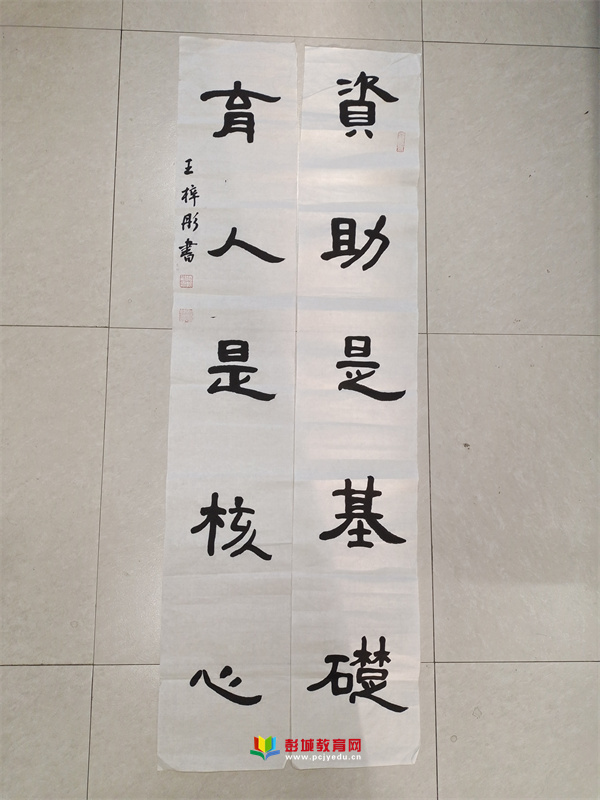 資助是基礎
育人是核心
王梓彤書
彭城教育网
www.pcjyedu.cn